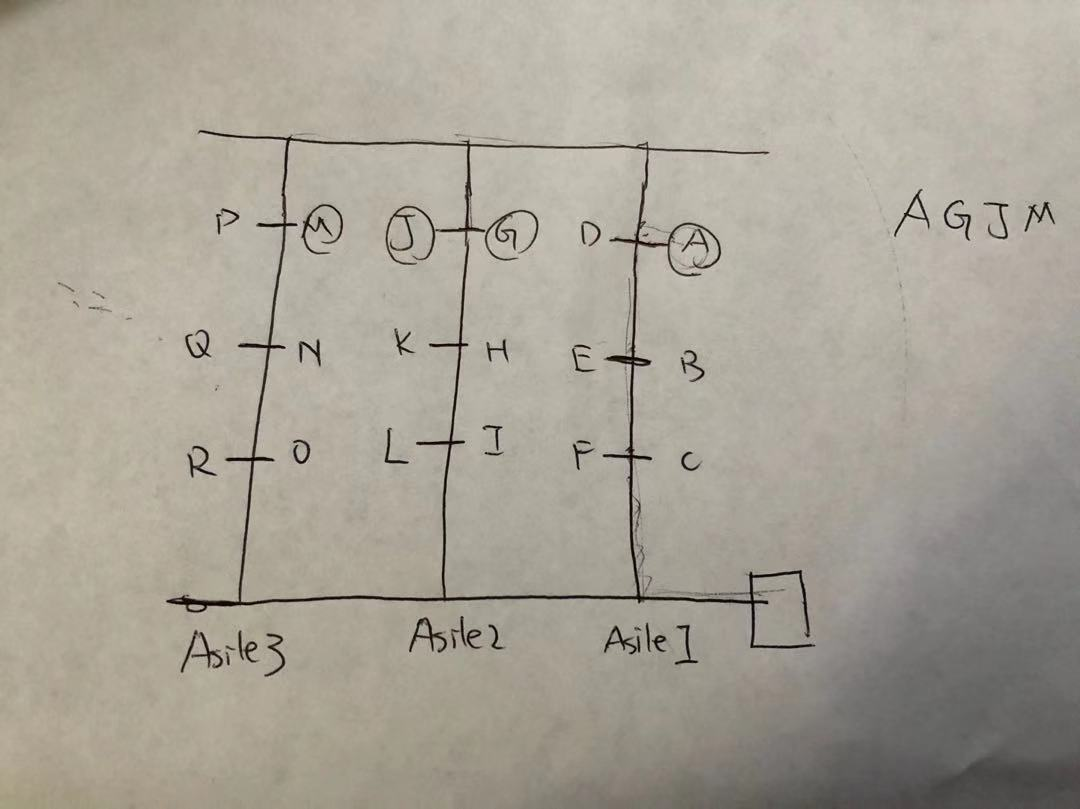 P M J G D A
A G J M
Q N K H E B
R O L I F C
Asile 3 Asile 2 Asile 1